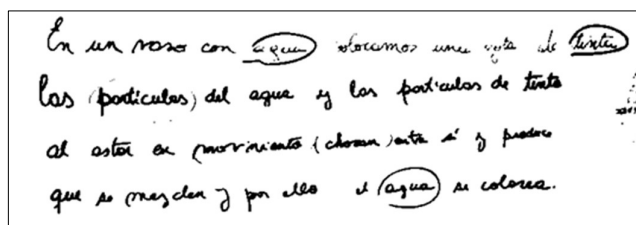 En un vaso con agua colocamos una gota de tinta
las (partículas) del agua y las partículas de tinta
al estar en movimiento (chocan) entre sí y produce
que se mezclen y por ello el agua se colorea.